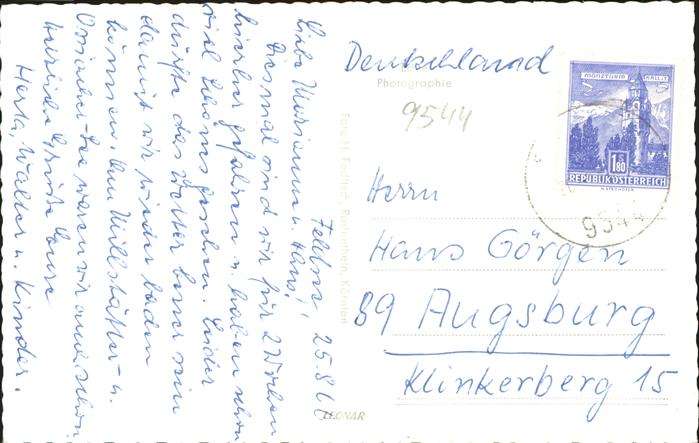 Feldner 25.8.66
Liebe Marianne u. Hans!
Diesmal sind wir für 2 Wochen
hierher gefahren u. haben schon
viel Schönes gesehen. Leider
dürfte das Wetter besser sein
damit wir wieder baden
können. Am Millstätter- u.
Ossiacher-See waren wir auch schon.
Herzliche Grüße Eure
Herta, Walter u. Kinder.
Deutschland
Photographie
9544
Herrn
Hans Görgen
89 Augsburg
Klinkerberg 15
MÜNZTURM HALL I.T.
1.80
S
REPUBLIK ÖSTERREICH
9544
LEONAR